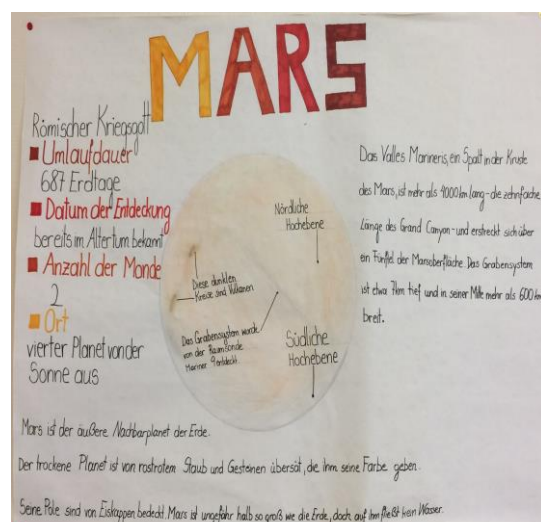 MARS
Römischer Kriegsgott
Umlaufdauer
687 Erdtage
Datum der Entdeckung
bereits im Altertum bekannt
Anzahl der Monde
2
Ort
vierter Planet von der
Sonne aus
Nördliche
Hochebene
Diese dunklen
Kreise sind Vulkanen
Das Grabensystem wurde
von der Raumsonde
Mariner 9 entdeckt.
Südliche
Hochebene
Das Valles Marineris, ein Spalt in der Kruste
des Mars, ist mehr als 4000 km lang - die zehnfache
Länge des Grand Canyon - und erstreckt sich über
ein Fünftel der Marsoberfläche. Das Grabensystem
ist etwa 7km tief und in seiner Mitte mehr als 600 km
breit.
Mars ist der äußere Nachbarplanet der Erde.
Der trockene Planet ist von rostrotem Staub und Gesteinen übersät, die ihm seine Farbe geben.
Seine Pole sind von Eiskappen bedeckt. Mars ist ungefähr halb so groß wie die Erde, doch auf ihm fließt kein Wasser.